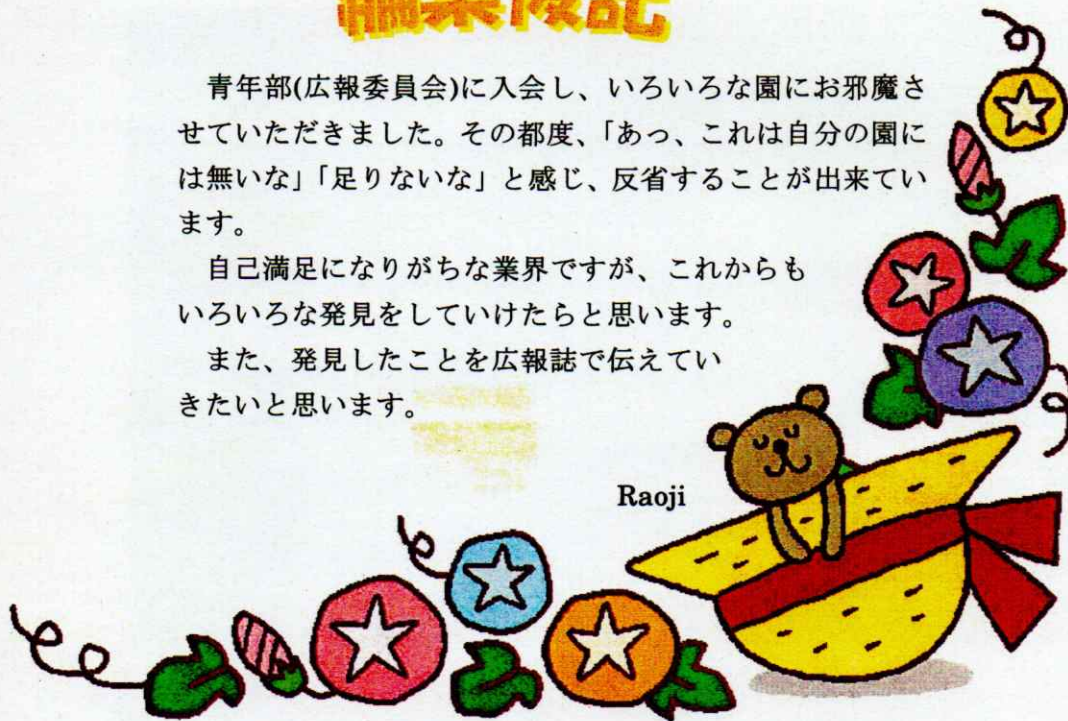 編集後記
青年部(広報委員会)に入会し、いろいろな園にお邪魔さ
せていただきました。その都度、「あっ、これは自分の園に
は無いな」「足りないな」と感じ、反省することが出来てい
ます。
自己満足になりがちな業界ですが、これからも
いろいろな発見をしていけたらと思います。
また、発見したことを広報誌で伝えてい
きたいと思います。
Raoji